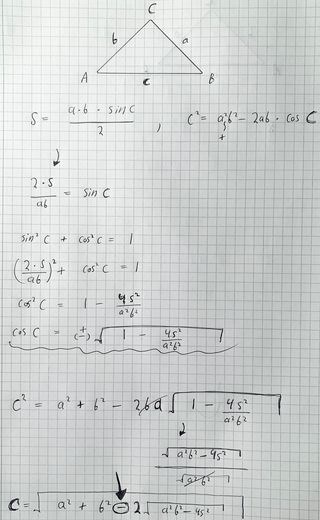 C
b a
A c B
S = a·b · sin C / 2 , c² = a²b² - 2ab · cos C
+
2·S / ab = sin C
sin² C + cos² C = 1
(2·S / ab)² + cos² C = 1
cos² C = 1 - 4S² / a²b²
cos C = + (-) √(1 - 4S² / a²b²)
C² = a² + b² - 2ba √(1 - 4S² / a²b²)
√(a²b² - 4S²) / √(a²b²)
C = √(a² + b² - 2 √(a²b² - 4S²))